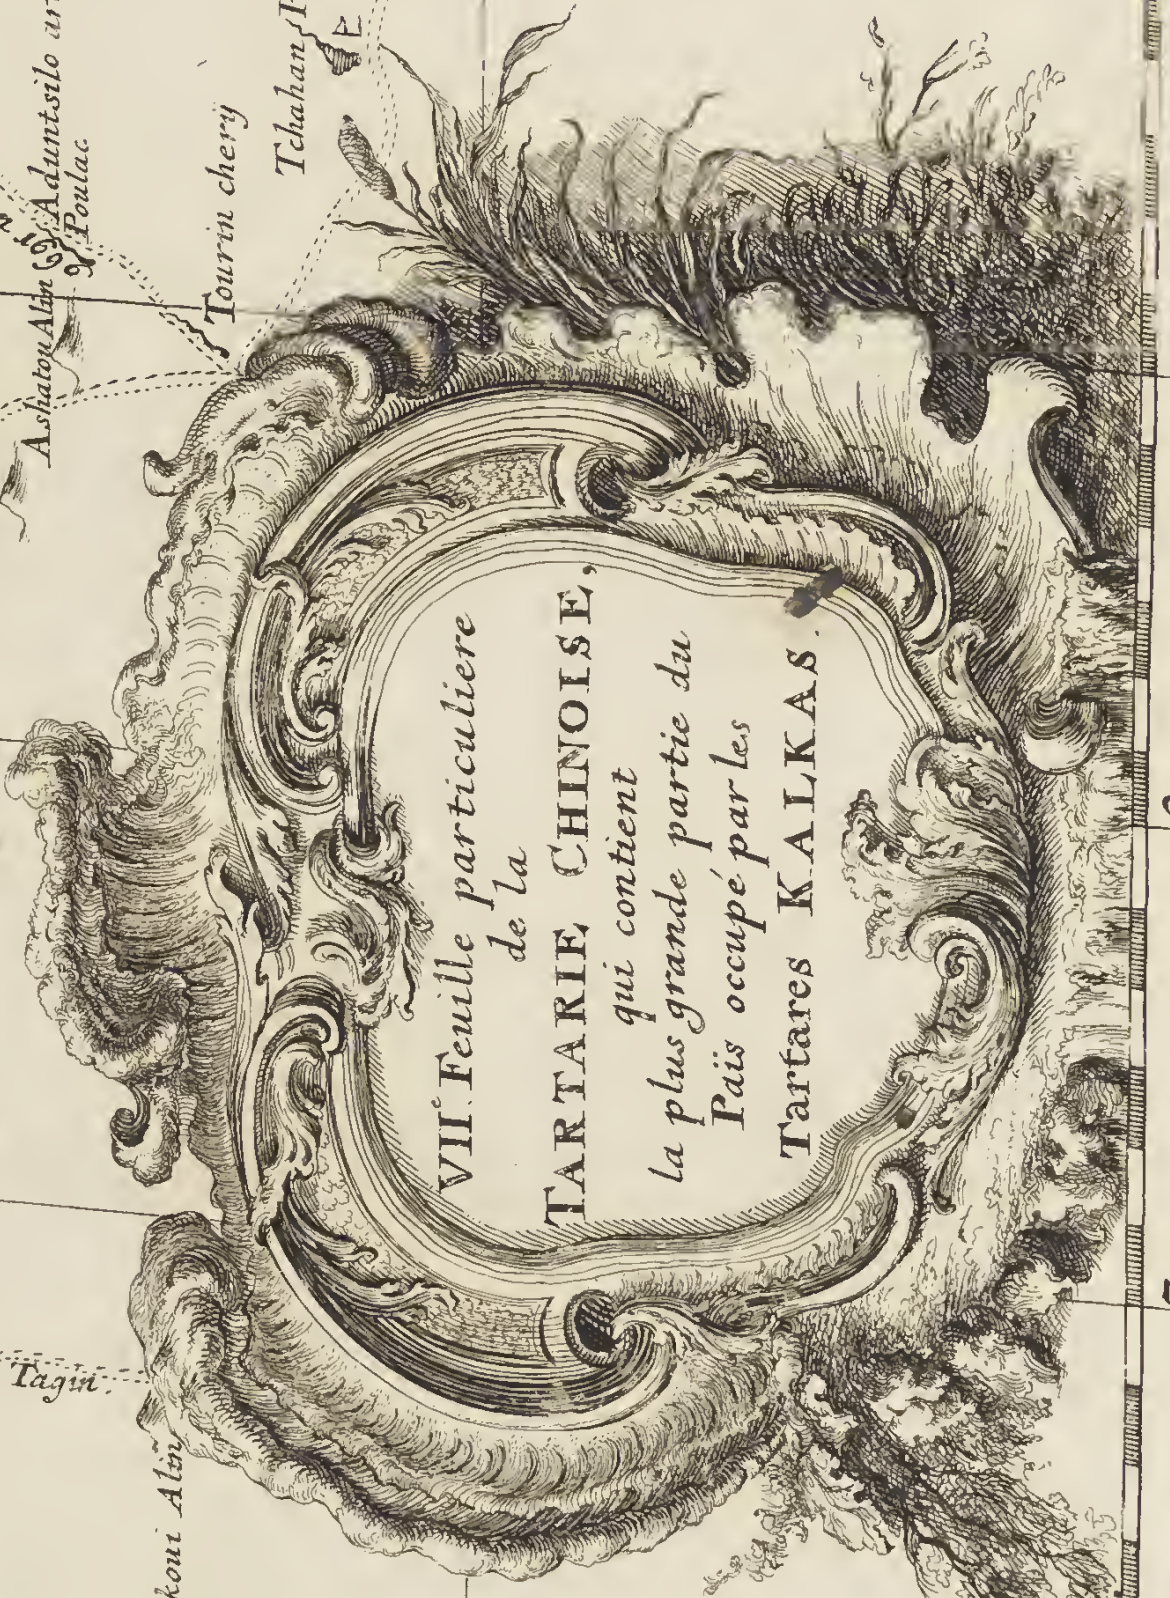 VIIe. Feuille particuliere
de la
TARTARIE CHINOISE,
qui contient
la plus grande partie du
Païs occupé par les
Tartares KALKAS.
Ashatou Alin
Aduntsilo
Poulac
Tourin chery
Tchahan
Tagin
koui Alin